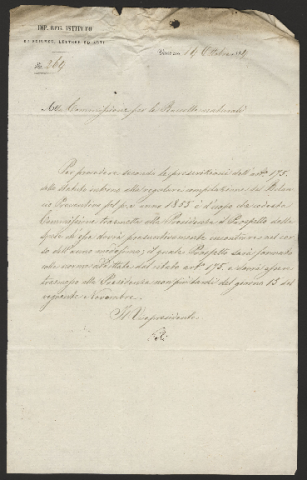 IMP. REG. ISTITUTO
DI SCIENZE, LETTERE ED ARTI
N. 264
Venezia 14 Ottobre
Alla Commissione per le Raccolte naturali
Per procedere secondo le prescrizioni dell'art. 175.
dello statuto interno alla regolare compilazione del Bilan-
cio Preventivo pel p.v. anno 1855 è d'uopo che codesta
Commissione trasmetta alla Presidenza il Prospetto delle
spese ch'essa dovrà presuntivamente incontrare nel corso
dell'anno medesimo; il quale Prospetto sarà formato
alla norma dello statuto art. 175. e dovrà essere
alla Presidenza non più tardi del giorno 15 del
seguente Novembre.
Il Vicepresidente